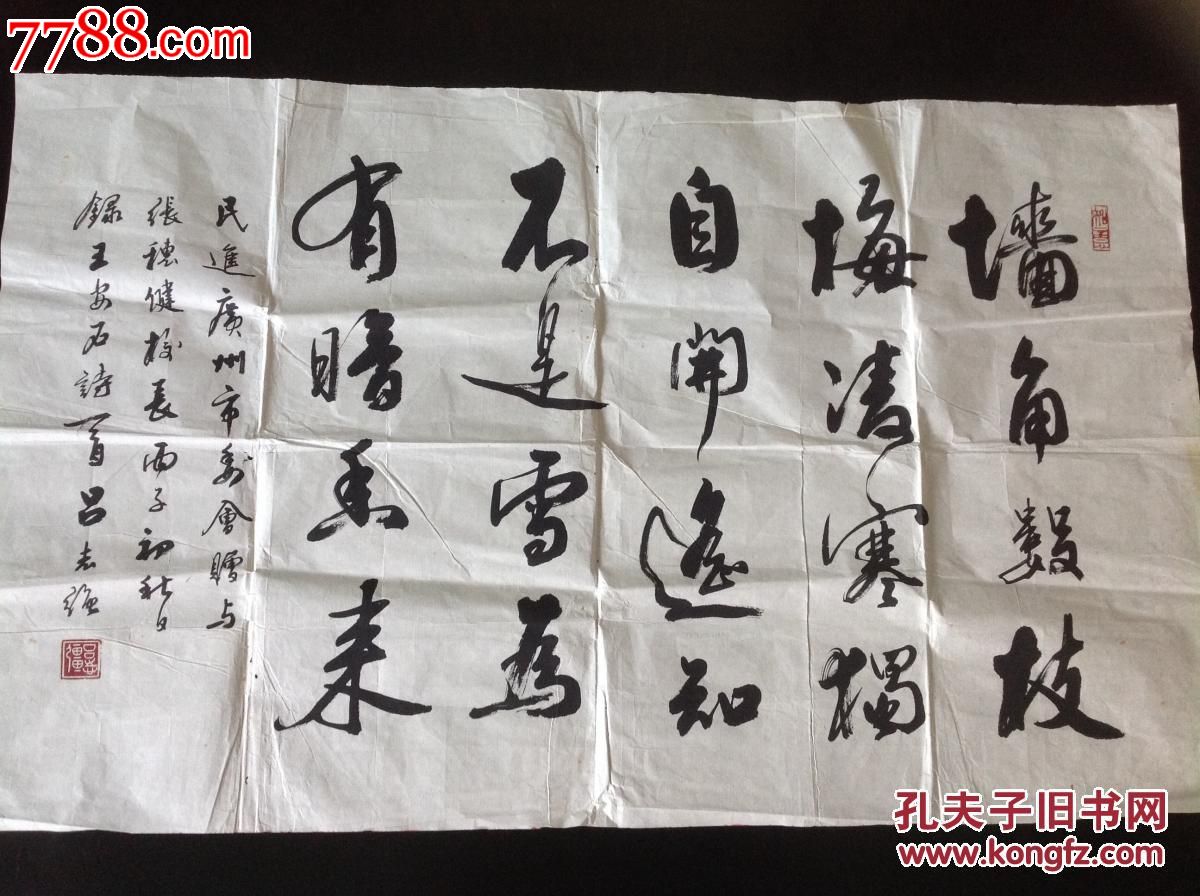 7788.com
墻角數枝
梅凌寒獨
自開遙知
不是雪為
有暗香來
民進廣州市委會贈与
張穗健校長丙子初秋日
録王安石詩一首呂志强
孔夫子旧书网
www.kongfz.com